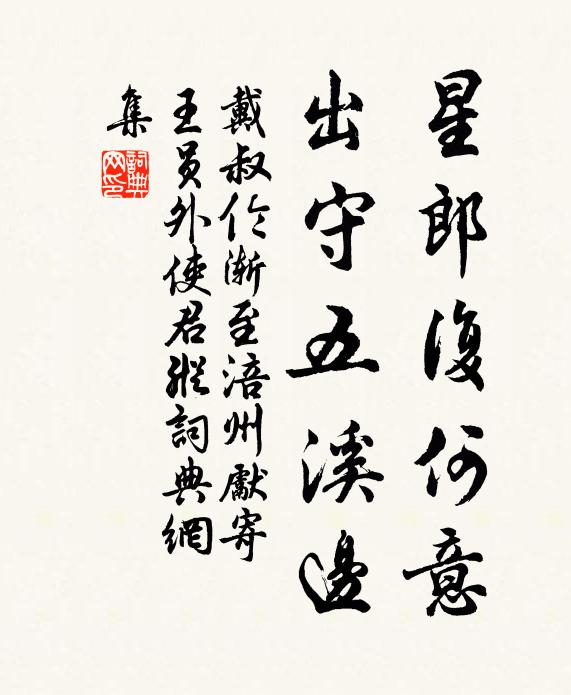 星郎復何意
出守五溪邊
戴叔伦渐至涪州獻寄
王员外使君縱詞典網
集
詞典网印